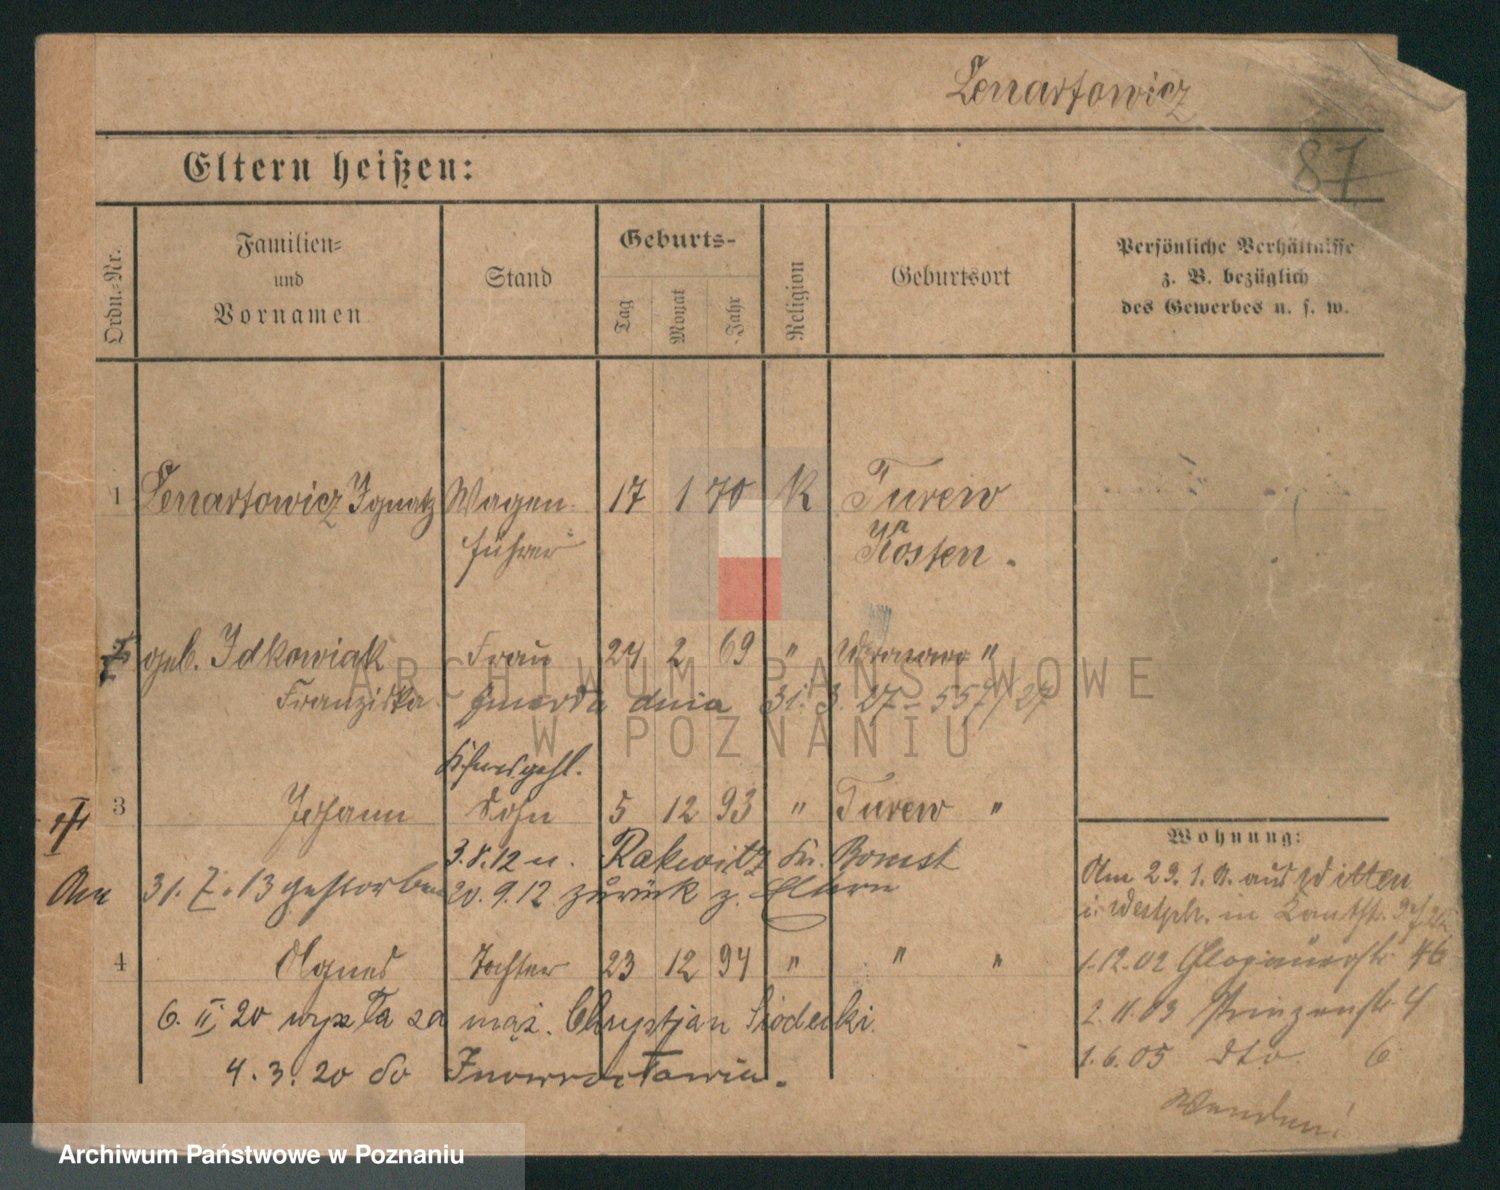 Lenartowicz
87
Eltern heißen:
Ordn.-Nr.
Familien- und Vornamen
Stand
Geburts-
Tag
Monat
Jahr
Religion
Geburtsort
Persönliche Verhältnisse
z. B. bezüglich
des Gewerbes u. s. w.
1 Lenartowicz Ignatz Wagen- 17 1 70 K Turew
führer Kr Kosten.
geb. Idkowiak Frau 24 2 69 " "
Franziska zmarła dnia 31. 3. 27 - 557/27
3 Johann Sohn 5 12 93 " Turew "
3.8.12 n. Rakwitz Kr. Bomst
Am 31. 7. 13 gestorben 20. 9. 12 zurück z. Eltern
4 Agnes Tochter 23 12 94 " " "
6. II. 20 wyszła za mąż. Chrystjan Siodecki.
4. 3. 20 do Inowrocławia.
Wohnung:
Am 29. 1. aus Witten
i. Westph. in
1.12.02 Glogauerstr 46
2.11.03 Prinzenstr 4
1.6.05 dto. 6
Wenden!
ARCHIWUM PAŃSTWOWE
W POZNANIU
Archiwum Państwowe w Poznaniu